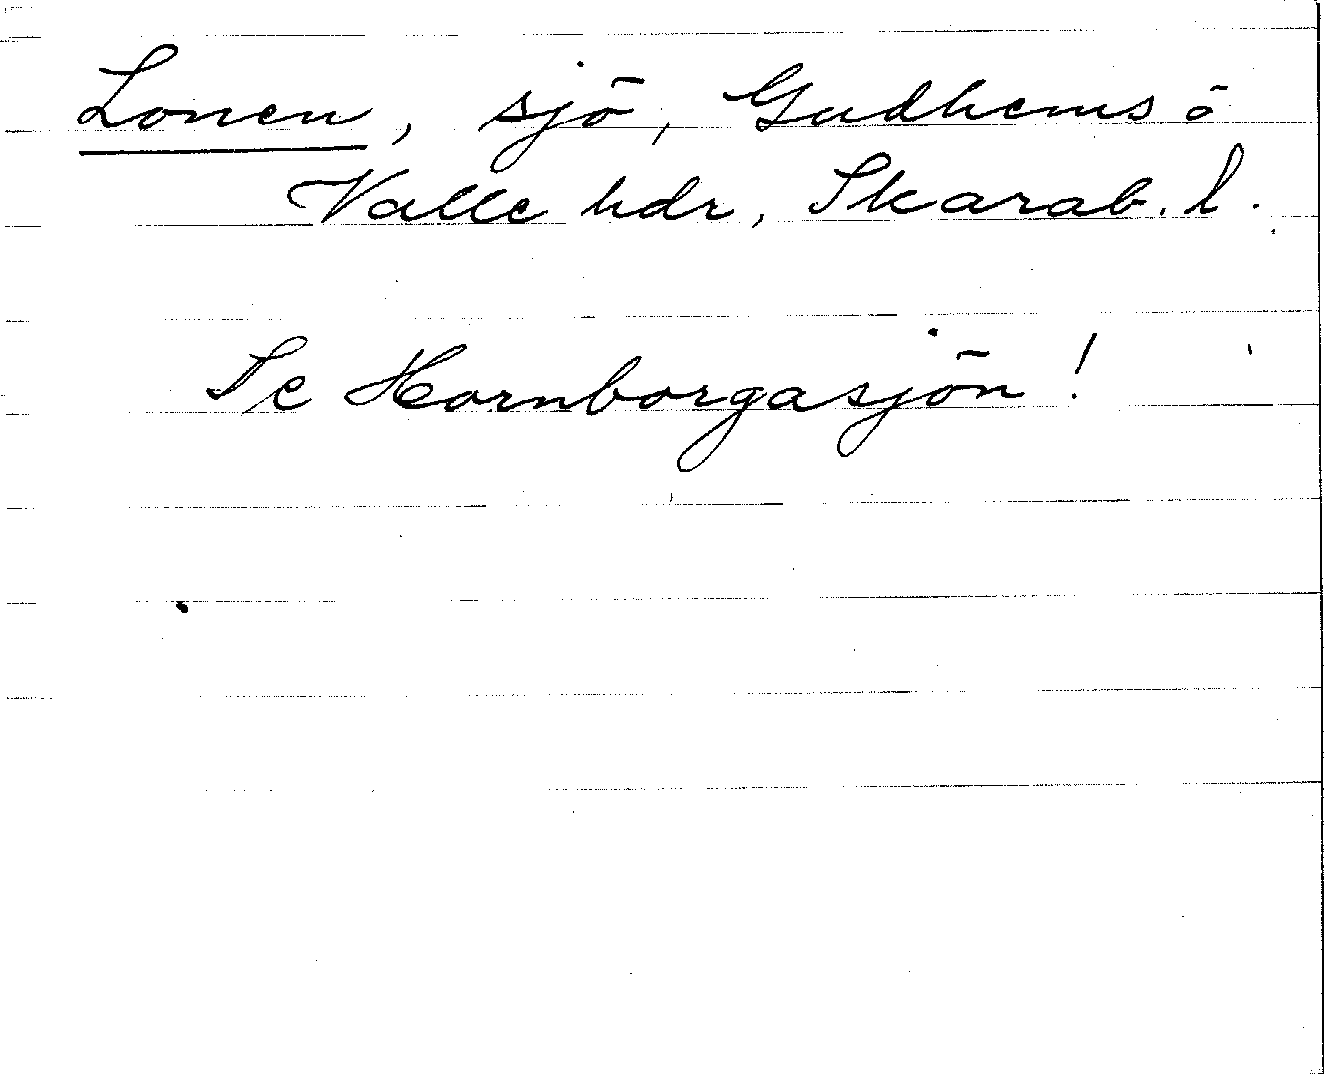 Lonen, sjö, Gudhems o
Valle hdr, Skarab. l.
Se Hornborgasjön!